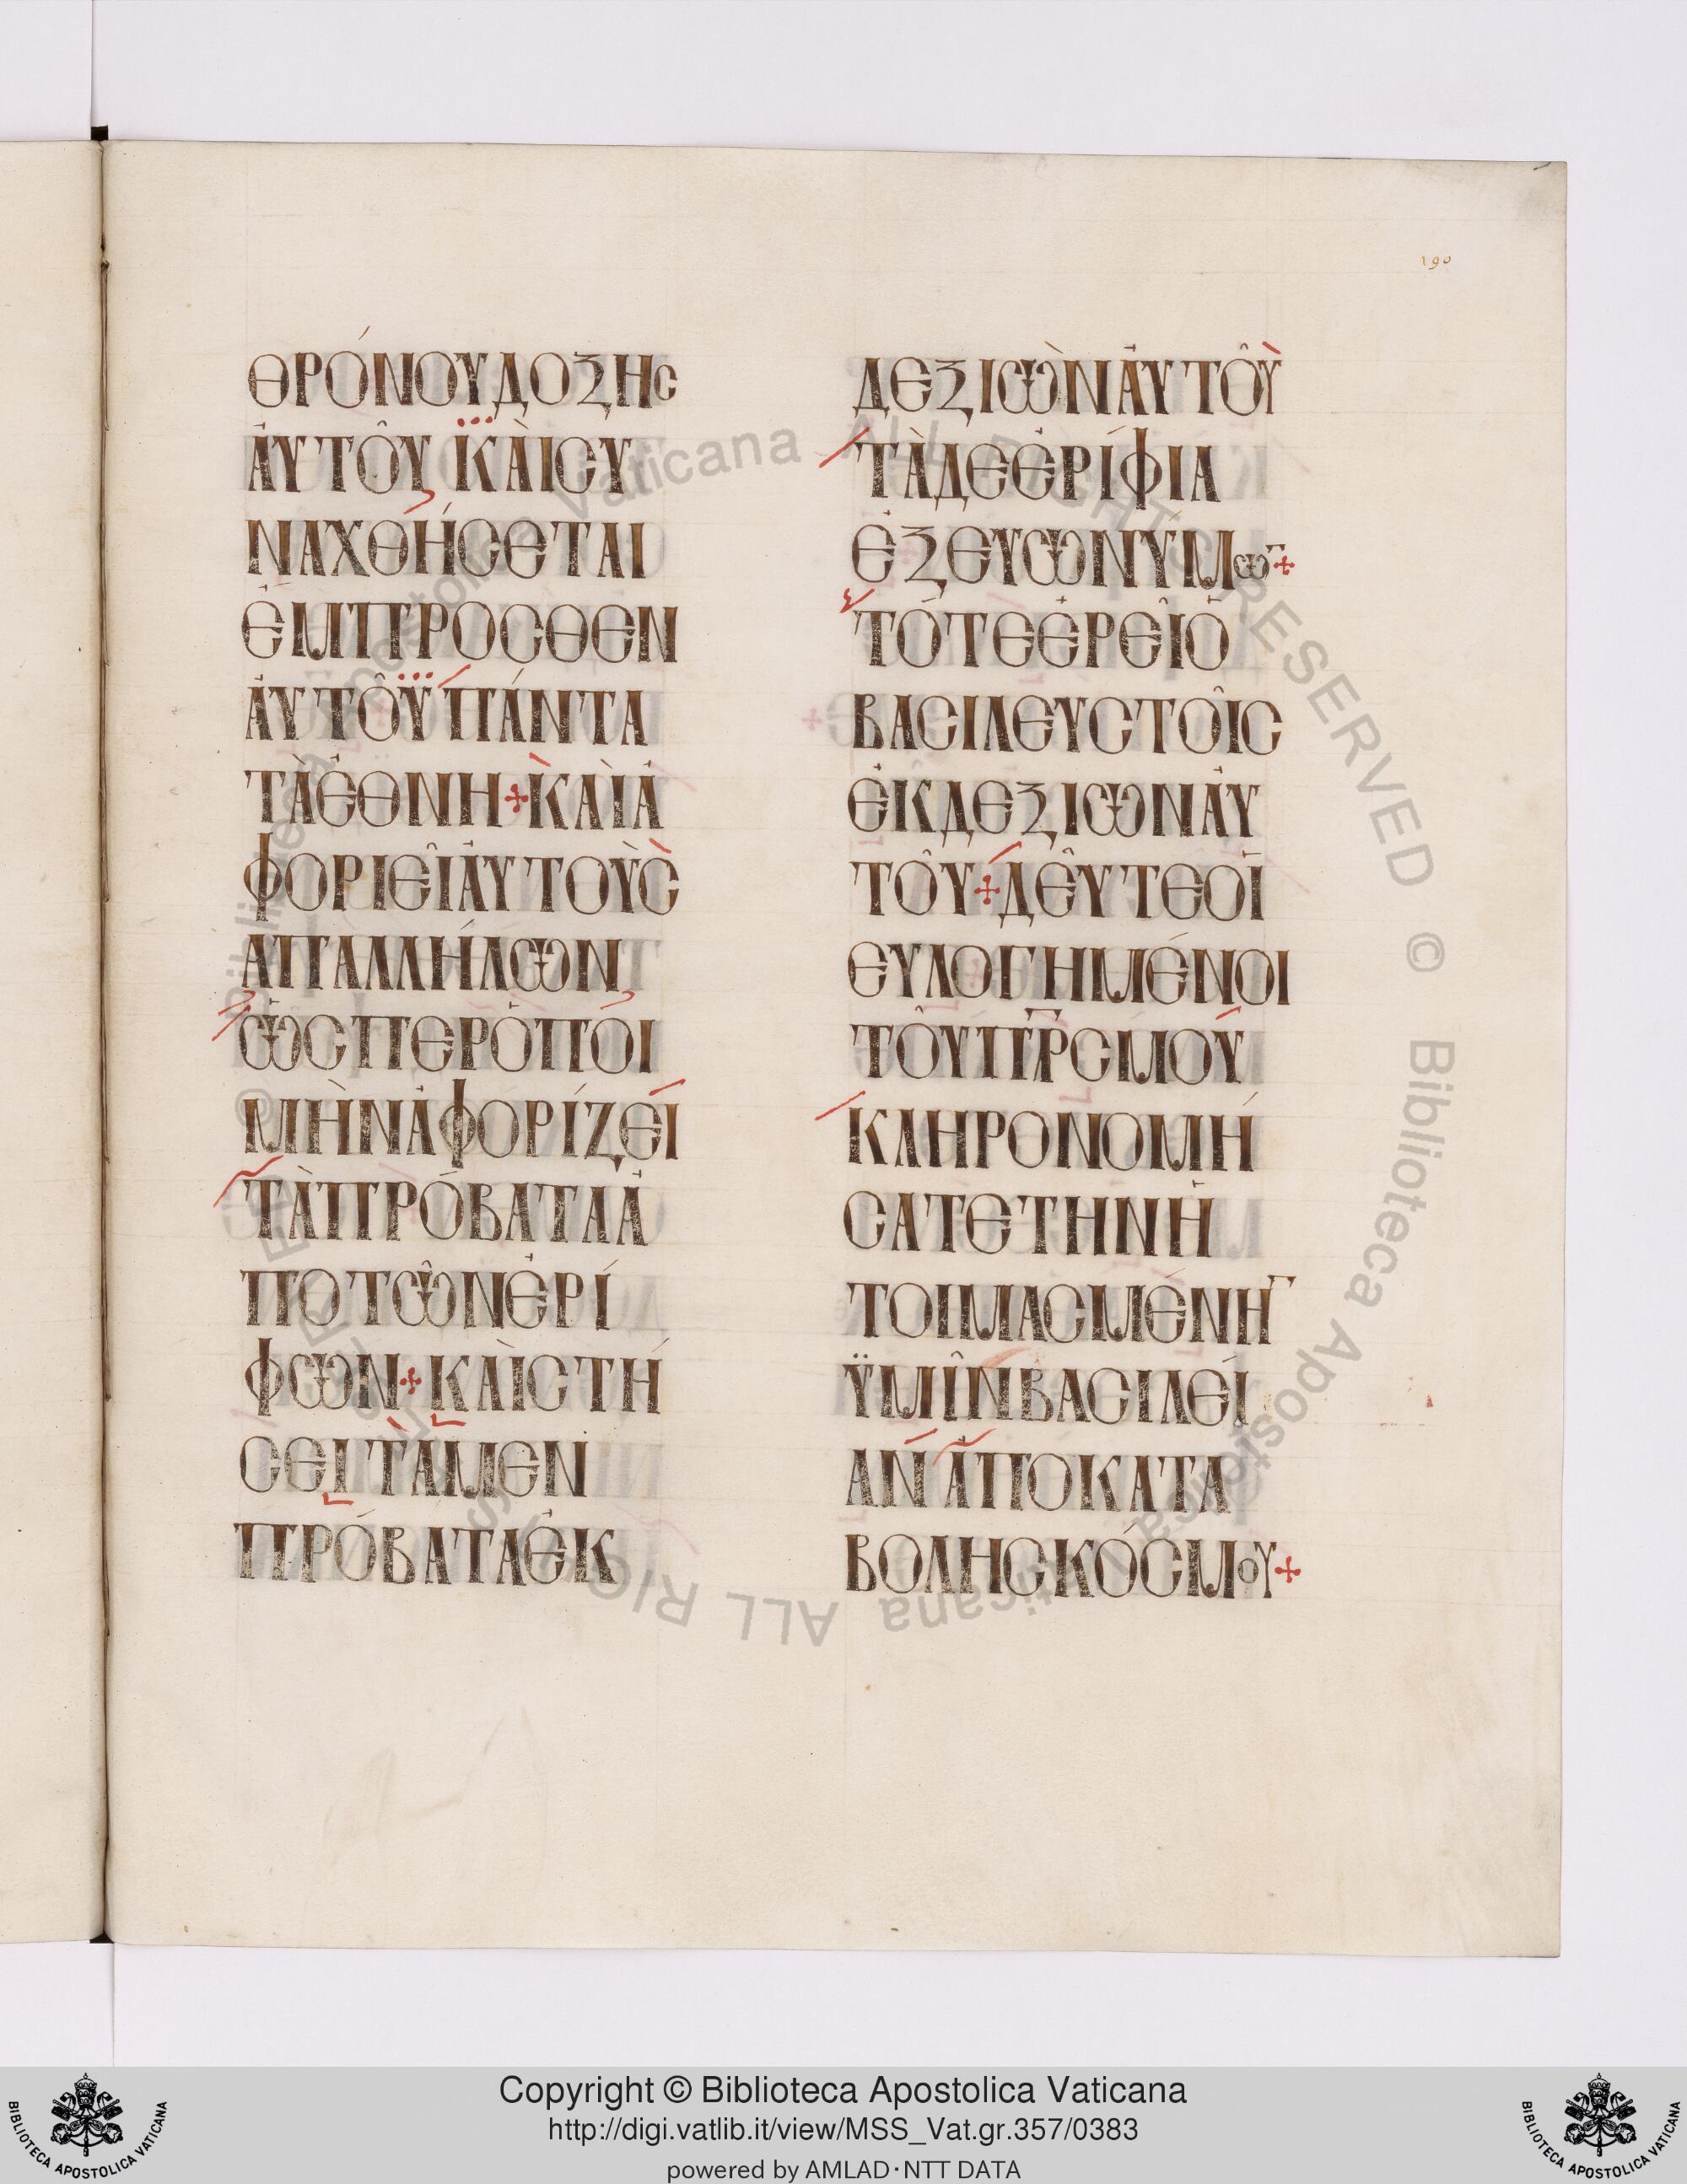 190
ΘΡΌΝΟΥΔΟΞΗς
ἈΥΤΟ͂Υ ΚΑῚCΥ
ΝΑΧΘΉCΕΤΑΙ
ἘΜΠΡΟCΘΕΝ
ἈΥΤΟ͂Ϋ ΠΆΝΤΑ
ΤᾺἘΘΝΗ+ΚΑῚἈ
ΦΟΡΙΕΙ͂ἈΥΤΟῪC
ΑΠΑΛΛΉΛΩΝ
ὩCΠΕΡὉΠΟΙ
ΜῊΝἈΦΟΡΊΖΕΙ
ΤᾺΠΡΌΒΑΤΑἈ
ΠΟΤΩ͂ΝἘΡΊ
ΦΩΝ+ΚΑῚCΤΉ
CΕΙ ΤᾺΜΕΝ
ΠΡΌΒΑΤΑἘΚ
ΔΕΞΙῺΝἈΥΤΟΥ͂
ΤᾺΔΕἘΡΊΦΙΑ
ἘΞΕΥΩΝΎΜω¯+
ΤΌΤΕἘΡΕΙ͂Ὁ
ΒΑCΙΛΕΥCΤΟΙ͂C
ἘΚΔΕΞΙΩΝἈΥ
ΤΟΥ͂+ΔΕΥ͂ΤΕΟἹ
ΕΥΛΟΓΗΜΈΝΟΙ
ΤΟΥ͂ΠΡ̅CΜΟΥ
ΚΛΗΡΟΝΟΜΉ
CΑΤΕΤΗΝἩ
ΤΟΙΜΑCΜΈΝΗ¯
ΫΜΙ͂ΝΒΑCΙΛΕΊ
ΑΝ ἈΠΟΚΑΤΑ
ΒΟΛΗCΚΌCΜΟΥ+
Copyright © Biblioteca Apostolica Vaticana
http://digi.vatlib.it/view/MSS_Vat.gr.357/0383
powered by AMLAD·NTT DATA
BIBLIOTECA APOSTOLICA VATICANA
BIBLIOTECA APOSTOLICA VATICANA